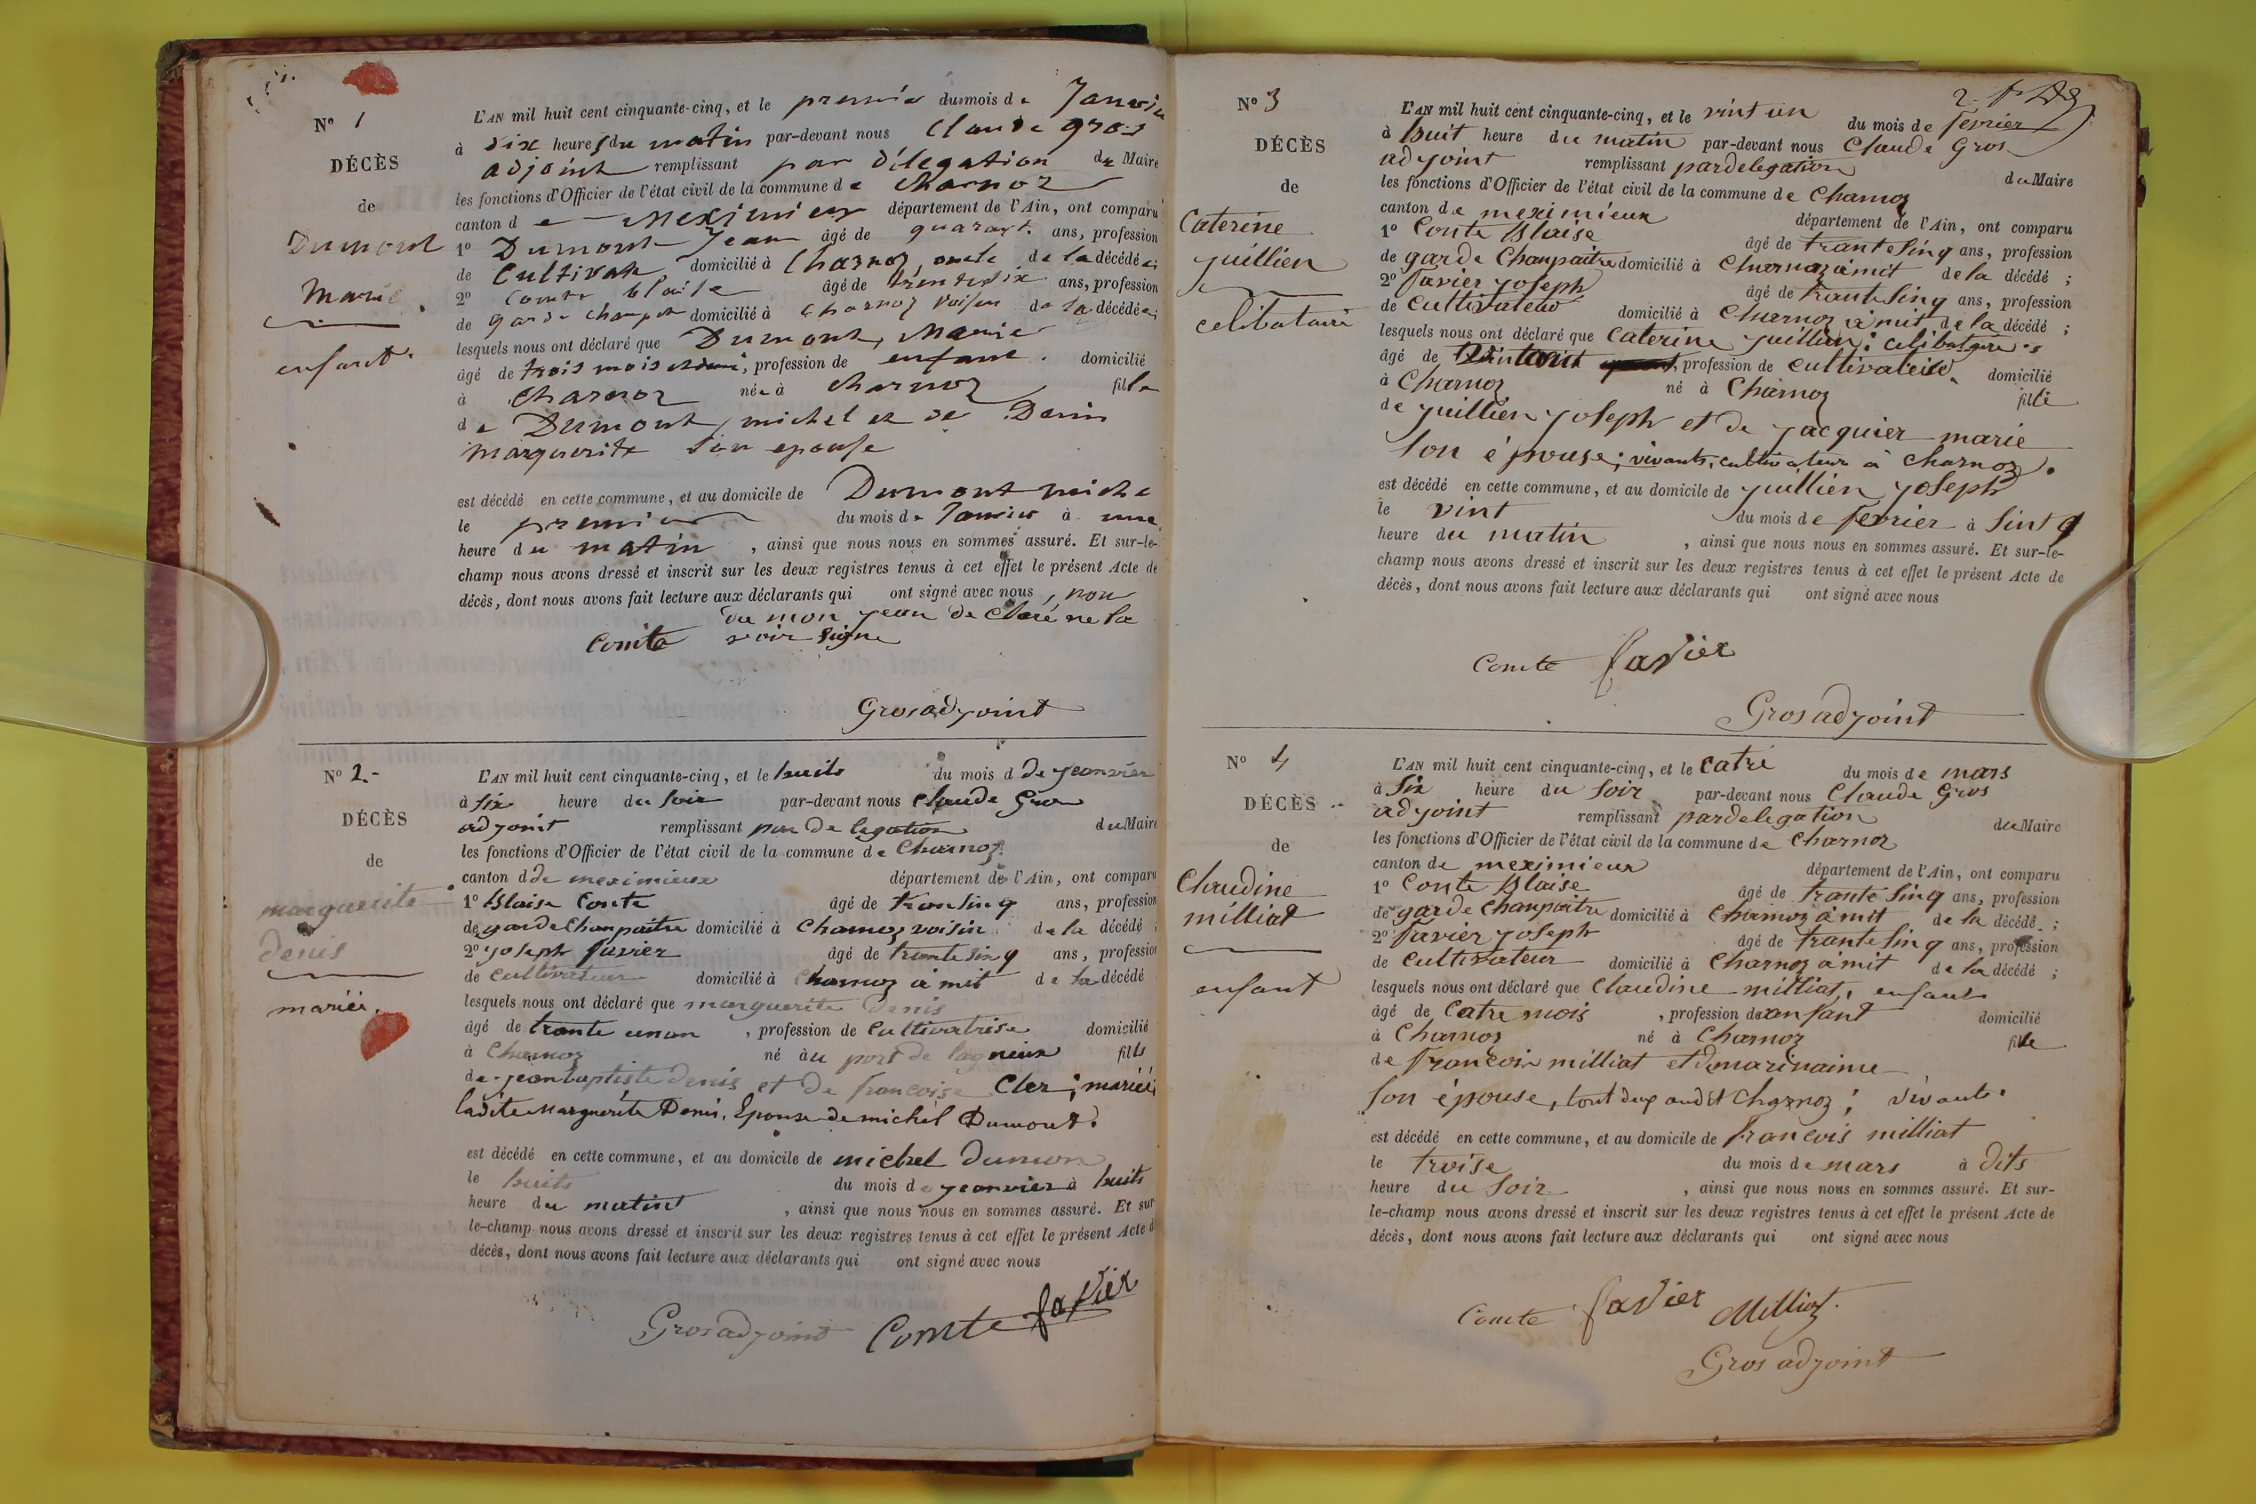 Nº 1
DÉCÈS
de
Dumont
Marie
enfant.
L'AN mil huit cent cinquante-cinq, et le premier du mois de Janvier
à dix heures du matin par-devant nous Claude gros
adjoint remplissant par délegation du Maire
les fonctions d'Officier de l'état civil de la commune de Charnoz
canton de Meximieux département de l'Ain, ont comparu
1º Dumont Jean âgé de quarant. ans, profession
de Cultivat domicilié à Charnoz, oncle de la décédée;
2º Comte blaise âgé de trente six ans, profession
de garde champet domicilié à Charnoz voisin de la décédée;
lesquels nous ont déclaré que Dumont, Marie
âgé de trois mois et demi, profession de enfant. domicilié
à Charnoz née à Charnoz fille
de Dumont, michel et de Denis
marguerite son epouse
est décédé en cette commune, et au domicile de Dumont miche
le premier du mois de Janvier à une
heure du matin, ainsi que nous nous en sommes assuré. Et sur-le-
champ nous avons dressé et inscrit sur les deux registres tenus à cet effet le présent Acte de
décès, dont nous avons fait lecture aux déclarants qui ont signé avec nous, non
du mon jean de claré ne la
Comte voir signe
Gros adjoint
Nº 2.-
DÉCÈS
de
marguerite
denis
mariée.
L'AN mil huit cent cinquante-cinq, et le huits du mois d de jeanvier
à six heure du soir par-devant nous Claude Gros
adjoint remplissant par de legation du Maire
les fonctions d'Officier de l'état civil de la commune de Charnoz.
canton d de meximieux département de l'Ain, ont comparu
1º Blaise Conte âgé de trantsinq ans, profession
de garde Chanpaitre domicilié à Charnoz voisin de la décédé;
2º joseph favier âgé de trantesinq ans, profession
de cultivateur domicilié à Charnoz a mit de la décédé
lesquels nous ont déclaré que marguerite denis
âgé de trante un an, profession de Cultivatrise domicilié
à Charnoz né à u port de lagnieux fille
de jeanbaptiste denis et de francoise Cler; mariée
ladite Marguerite Denis, Epouse de michel Dumont.
est décédé en cette commune, et au domicile de michel dumon
le huits du mois de jeanvier à huits
heure du matint, ainsi que nous nous en sommes assuré. Et sur
le-champ nous avons dressé et inscrit sur les deux registres tenus à cet effet le présent Acte d
décès, dont nous avons fait lecture aux déclarants qui ont signé avec nous
Gros adjoint Comte favier
2.
Nº 3
DÉCÈS
de
Caterine
juillien
celibataire
L'AN mil huit cent cinquante-cinq, et le vint un du mois de fevrier
à huit heure du matin par-devant nous Claude Gros
adjoint remplissant pardelegation du Maire
les fonctions d'Officier de l'état civil de la commune de Charnoz
canton de meximieux département de l'Ain, ont comparu
1º Conte Blaise âgé de trantesinq ans, profession
de garde Chanpaitre domicilié à Charnoz a mit de la décédé;
2º favier joseph âgé de trantesinq ans, profession
de cultivateur domicilié à Charnoz a mit de la décédé;
lesquels nous ont déclaré que Caterine juillien; celibataire;
âgé de, profession de cultivateise domicilié
à Charnoz né à Charnoz fille
de juillien joseph et de jacquier marie
son épouse; vivants, cultivateur à Charnoz.
est décédé en cette commune, et au domicile de juillien joseph
le vint du mois de fevrier à sintq
heure du matin, ainsi que nous nous en sommes assuré. Et sur-le-
champ nous avons dressé et inscrit sur les deux registres tenus à cet effet le présent Acte de
décès, dont nous avons fait lecture aux déclarants qui ont signé avec nous
Comte favier
Gros adjoint
Nº 4
DÉCÈS
de
Claudine
milliat
enfant
L'AN mil huit cent cinquante-cinq, et le catre du mois de mars
à six heure du soir par-devant nous Claude Gros
adjoint remplissant pardelegation du Maire
les fonctions d'Officier de l'état civil de la commune de Charnoz
canton de meximieux département de l'Ain, ont comparu
1º Conte Blaise âgé de trante sinq ans, profession
de garde chanpaitre domicilié à Charnoz a mit de la décédé;
2º favier joseph âgé de trante sinq ans, profession
de cultivateur domicilié à Charnoz a mit de la décédé;
lesquels nous ont déclaré que Claudine milliat, enfant
âgé de Catre mois, profession de anfant domicilié
à Charnoz né à Charnoz fille
de francois milliat et de
son épouse, tout deux audit Charnoz; vivants.
est décédé en cette commune, et au domicile de francois milliat
le troise du mois de mars à dits
heure du soir, ainsi que nous nous en sommes assuré. Et sur-
le-champ nous avons dressé et inscrit sur les deux registres tenus à cet effet le présent Acte de
décès, dont nous avons fait lecture aux déclarants qui ont signé avec nous
Comte favier Milliat.
Gros adjoint